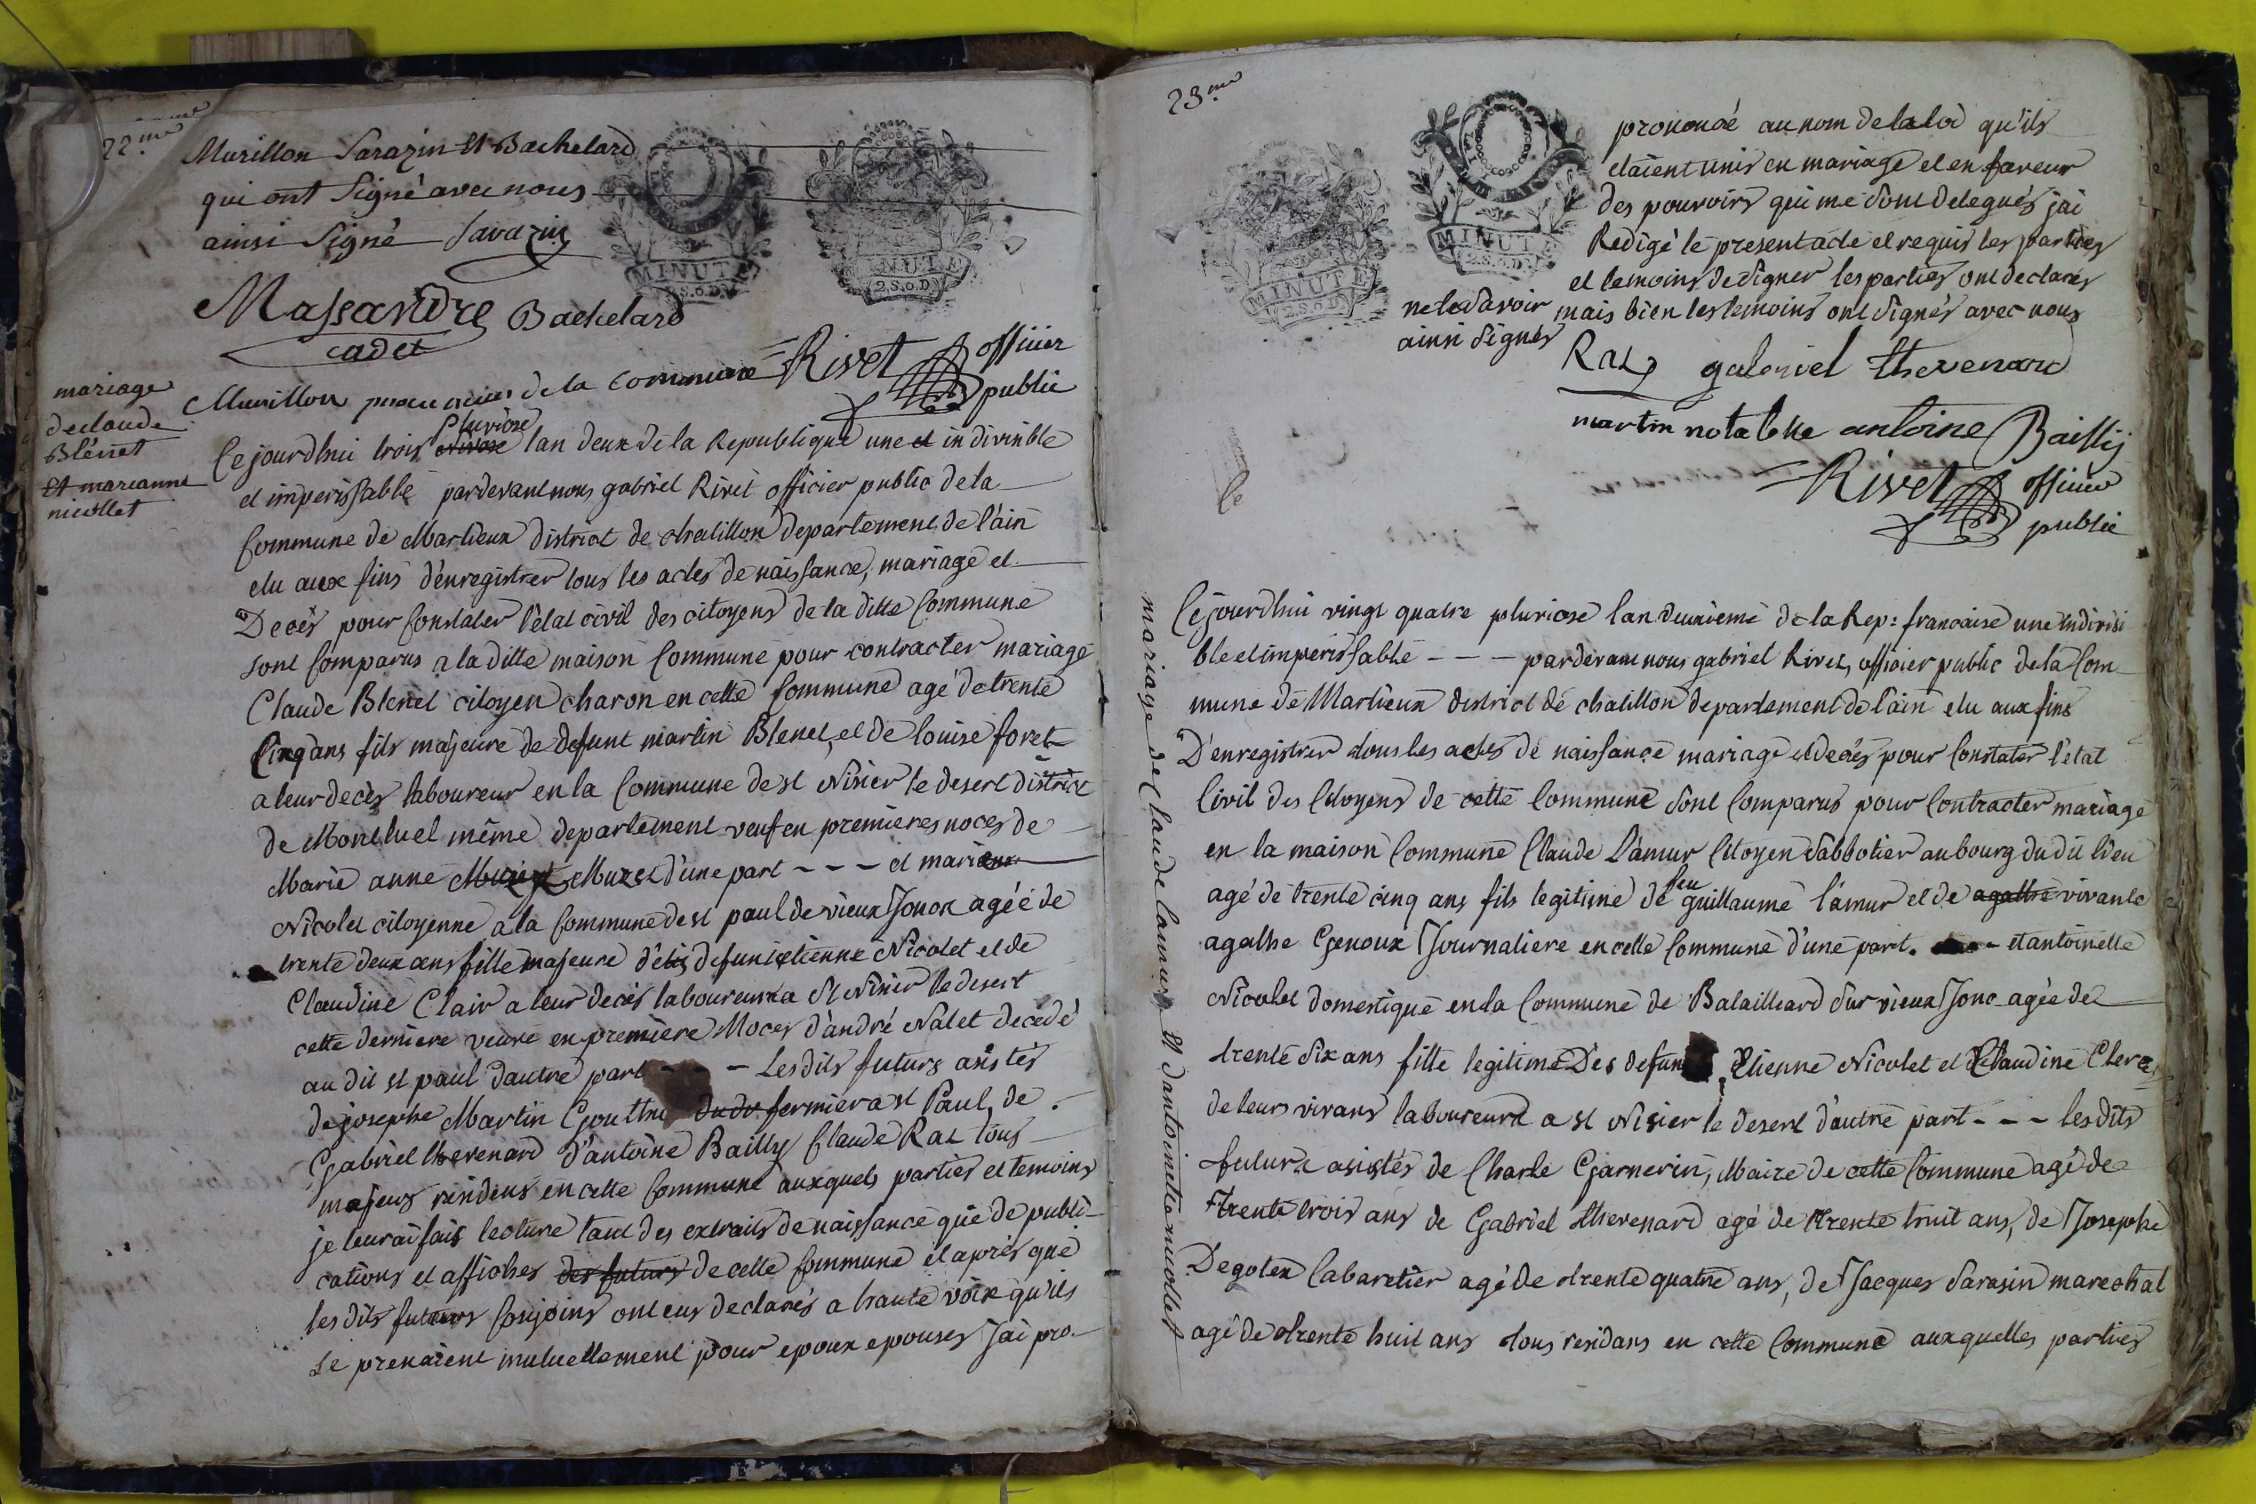 22.me
Murillon Sarazin et Bachelard
qui ont signé avec nous
ainsi signé Sarazin
Massandre Bachelard
cadet
Murillon de la commune Rivet officier
public
MINUTE
2.S.o.D
MINUTE
2.S.o.D
mariage
de claude
Blénet
Et marianne
nicollet
pluviose
Cejourdhui trois nivose lan deux de la Republique une et indivisible
et imperissable pardevant nous gabriel Rivet officier public de la
Commune de Marlieux district de chatillon departement de l'ain
elu aux fins d'enregistrer tous les actes de naissance, mariage et
Decès pour Constater l'état civil des citoyens de la ditte Commune
sont Comparus a la ditte maison Commune pour contracter mariage
Claude Blenet citoyen charon en cette Commune agé de trente
Cinq ans fils majeure de defunt martin Blenet, et de louise foret
a leur decès laboureur en la Commune de st Nisier le desert district
de Montluel même departement veuf en premieres noces de
Marie anne Muzet d'une part - - - et marianne
Nicolet citoyenne a la Commune de st paul de vieux Jonox agée de
trente deux ans fille majeure de defunt etienne Nicolet et de
Claudine Clair a leur decès laboureurs a st Nisier le desert
cette derniere veuve en premiere Noces d'andré Nalet decedé
au dit st paul dautre part - - - Les dits futurs asistés
de josephe Martin Gouttu du dt fermier a st Paul, de
Gabriel thevenard d'antoine Bailly Claude Rat tous
majeurs residens en cette Commune auxquels parties et temoins
je leur ai fais lecture tant des extraits de naissance que de publi-
cations et affiches des futurs de cette Commune et après que
les dits futurs Conjoins ont eus declarés a haute voix qu'ils
se prenaient mutuellement pour epoux epouses Jai pro-
23.me
MINUTE
2.S.o.D
MINUTE
2.S.o.D
prononcé au nom de la loi qu'ils
etaient unis en mariage et en faveur
des pouvoirs qui me sont delegués jai
Redigé le present acte et requis les parties
et temoins de signer les parties ont declarés
ne le savoir mais bien les temoins ont signés avec nous
ainsi signés
Rat gabriel thevenard
martin notable antoine Bailly
Rivet officier
public
le
mariage de Claude Lamur et dantoinette nicollet
Cejourdhui vingt quatre pluviose lan deuxieme de la Rep: francaise une indivisi
ble et imperissable - - - pardevant nous gabriel Rivet, officier public de la Com
mune de Marlieux district de chatillon departement de l'ain elu aux fins
D'enregistrer tous les actes de naissance mariage et decés pour Constater l'etat
Civil des Citoyens de cette Commune sont Comparus pour Contracter mariage
en la maison Commune Claude Lamur Citoyen Sabbotier au bourg du dit lieu
feu
agé de trente cinq ans fils legitime de guillaume l'amur et de agathe vivante
agathe Genoux Journaliere en cette Commune d'une part. - et antoinette
Nicolet domestique en la Commune de Batailliard sur vieux Jonc agée de
trente six ans fille legitime Des defun Etienne Nicolet et de Claudine Clerc
de leurs vivans laboureurs a st Nisier le desert d'autre part - - - les dits
futurs asistés de Charle Garnerin, Maire de cette Commune agé de
trente trois ans de Gabriel thevenard agé de trente huit ans, de Josephe
Degotex Cabaretier agé de trente quatre ans, de Jacques Sarasin marechal
agé de trente huit ans tous residans en cette Commune auxquelles parties